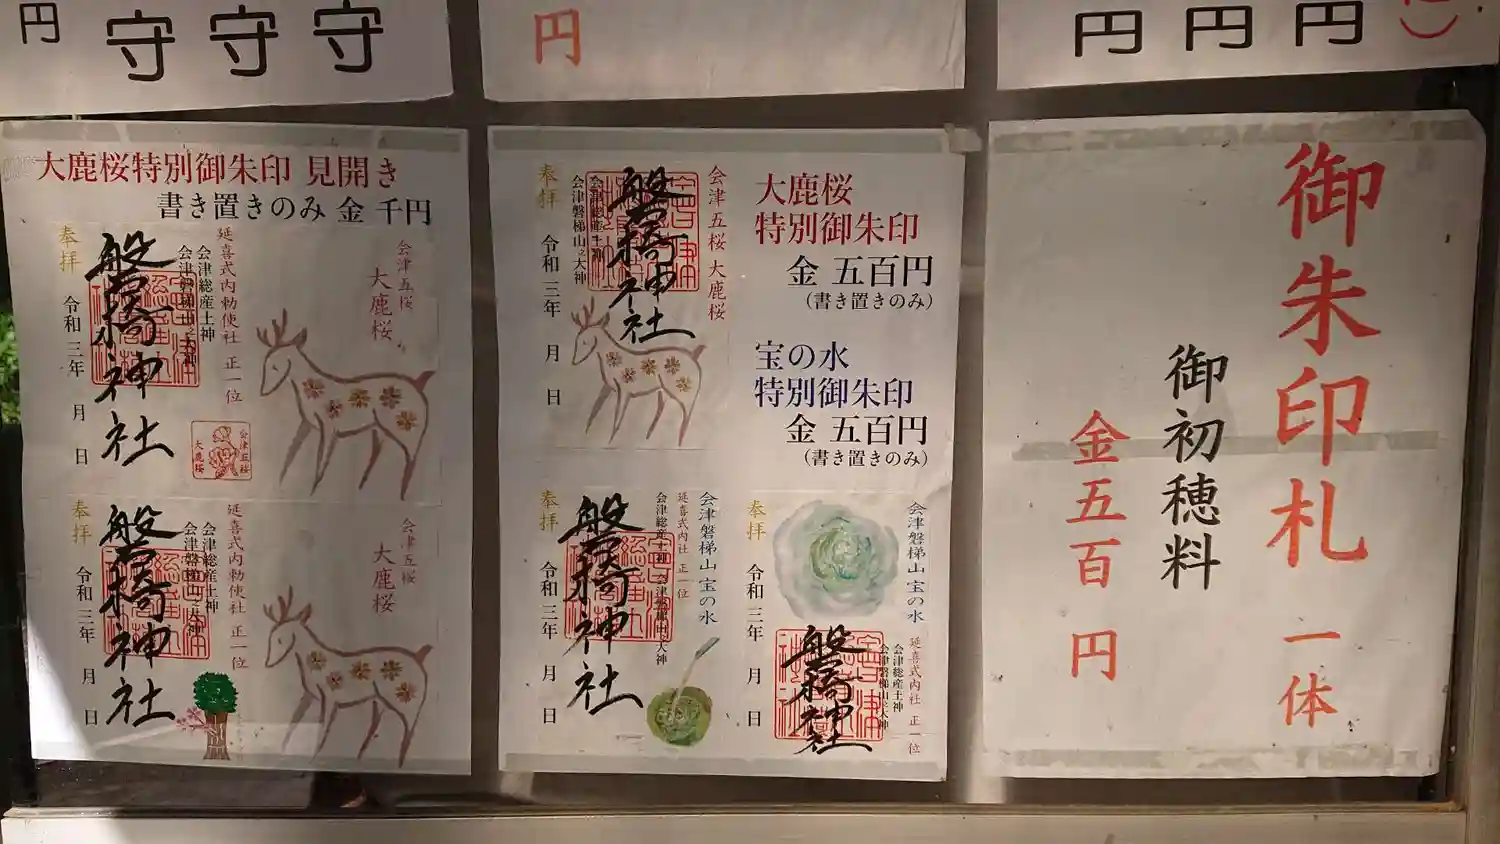 円
守守守
円
円円円
大鹿桜特別御朱印 見開き
書き置きのみ 金 千円
会津五桜
大鹿桜
延喜式内勅使社 正一位
会津総産土神
会津磐梯山之大神
磐椅神社
奉拝
令和三年 月 日
会津五桜
大鹿桜
会津五桜
大鹿桜
延喜式内勅使社 正一位
会津総産土神
会津磐梯山之大神
磐椅神社
奉拝
令和三年 月 日
大鹿桜
特別御朱印
金 五百円
(書き置きのみ)
宝の水
特別御朱印
金 五百円
(書き置きのみ)
会津五桜 大鹿桜
磐椅神社
会津総産土神
会津磐梯山之大神
奉拝
令和三年 月 日
会津磐梯山 宝の水
延喜式内社 正一位
会津総産土神 会津磐梯山之大神
磐椅神社
奉拝
令和三年 月 日
会津磐梯山 宝の水
延喜式内社 正一位
会津総産土神
会津磐梯山之大神
磐椅神社
奉拝
令和三年 月 日
御朱印札 一体
御初穂料
金五百円